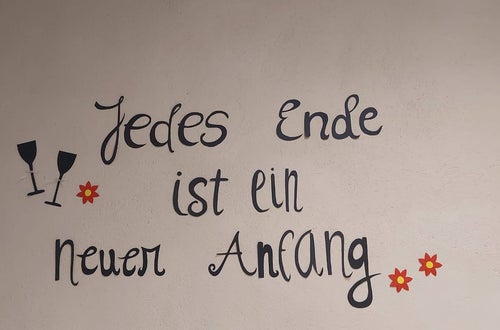 Jedes Ende
ist ein
neuer Anfang..